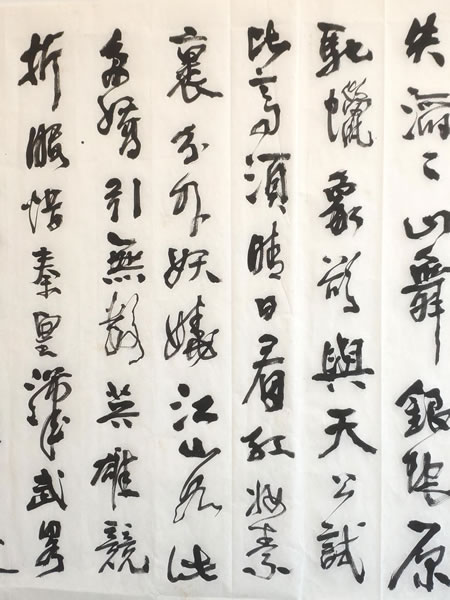 失滔〻山舞銀蛇原
馳蠟象欲與天公試
比高須晴日看紅妝素
裹分外妖嬈江山如此
多嬌引無數英雄競
折腰惜秦皇漢武畧